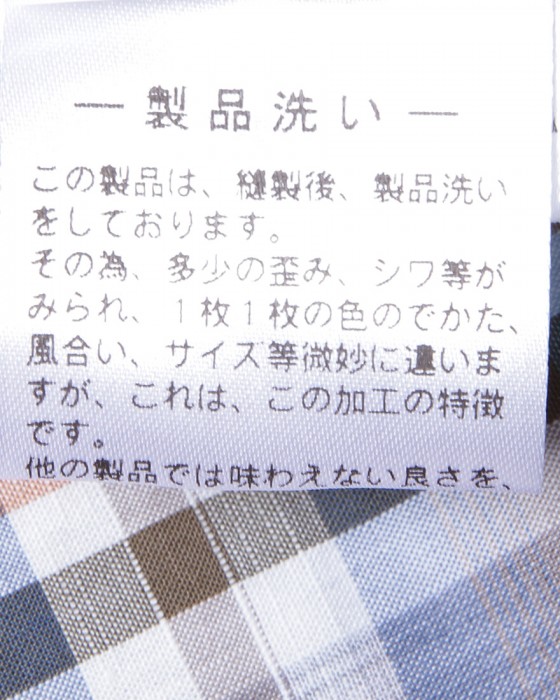 ― 製品洗い ―
この製品は、縫製後、製品洗い
をしております。
その為、多少の歪み、シワ等が
みられ、1枚1枚の色のでかた、
風合い、サイズ等微妙に違いま
すが、これは、この加工の特徴
です。
他の製品では味わえない良さを、